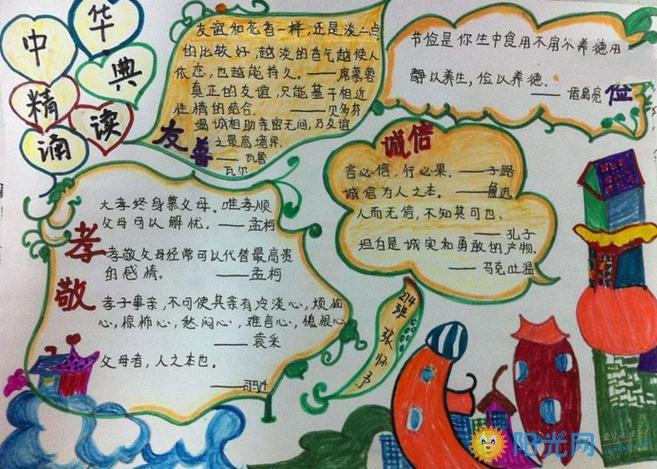 中
华
精
典
诵
读
友谊如花香一样，还是淡一点
的比较好，越淡的香气越使人
依恋，也越能持久。——席慕蓉
真正的友谊，只能基于相近
性情的结合。——贝多芬
温诚相助亲密无间，乃友谊
之最高境界。
——瓦鲁
瓦尔
友善
节俭是你生中食用不完
养德用
静以养生，俭以养德。
——诸葛亮
俭
诚信
言必信，行必果。——子路
诚信为人之本。——鲁迅
人而无信，不知其可也。
——孔子
坦白是诚实和勇敢的产物。
——马克吐温
孝
敬
大孝终身慕父母。唯孝顺
父母可以解忧。——孟柯
孝敬父母经常可以代替最高贵
的感情。——孟柯
孝子事亲，不可使其亲有冷淡心，烦恼
心，惊怖心，愁闷心，难言心，愧恨心
——袁采
父母者，人之本也。
214
班
张怀予
阳光网